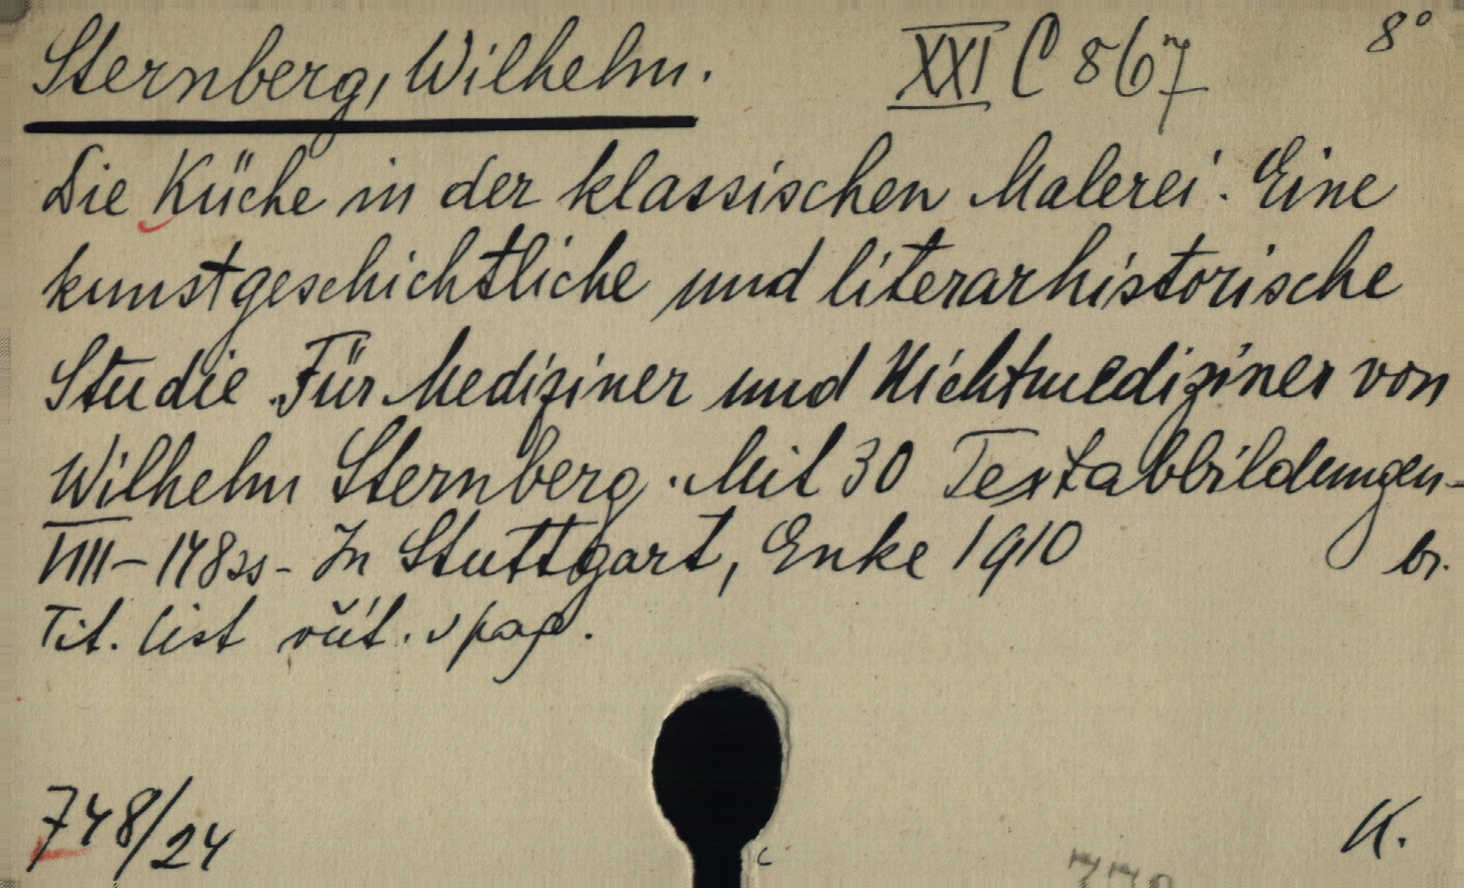 Sternberg, Wilhelm. XXI C 867 8°
Die Küche in der klassischen Malerei. Eine
kunstgeschichtliche und literarhistorische
Studie. Für Mediziner und Nichtmediziner von
Wilhelm Sternberg. Mit 30 Textabbildungen-
VIII-148ss- In Stuttgart, Enke 1910 br.
Tit. list
748/24 K.